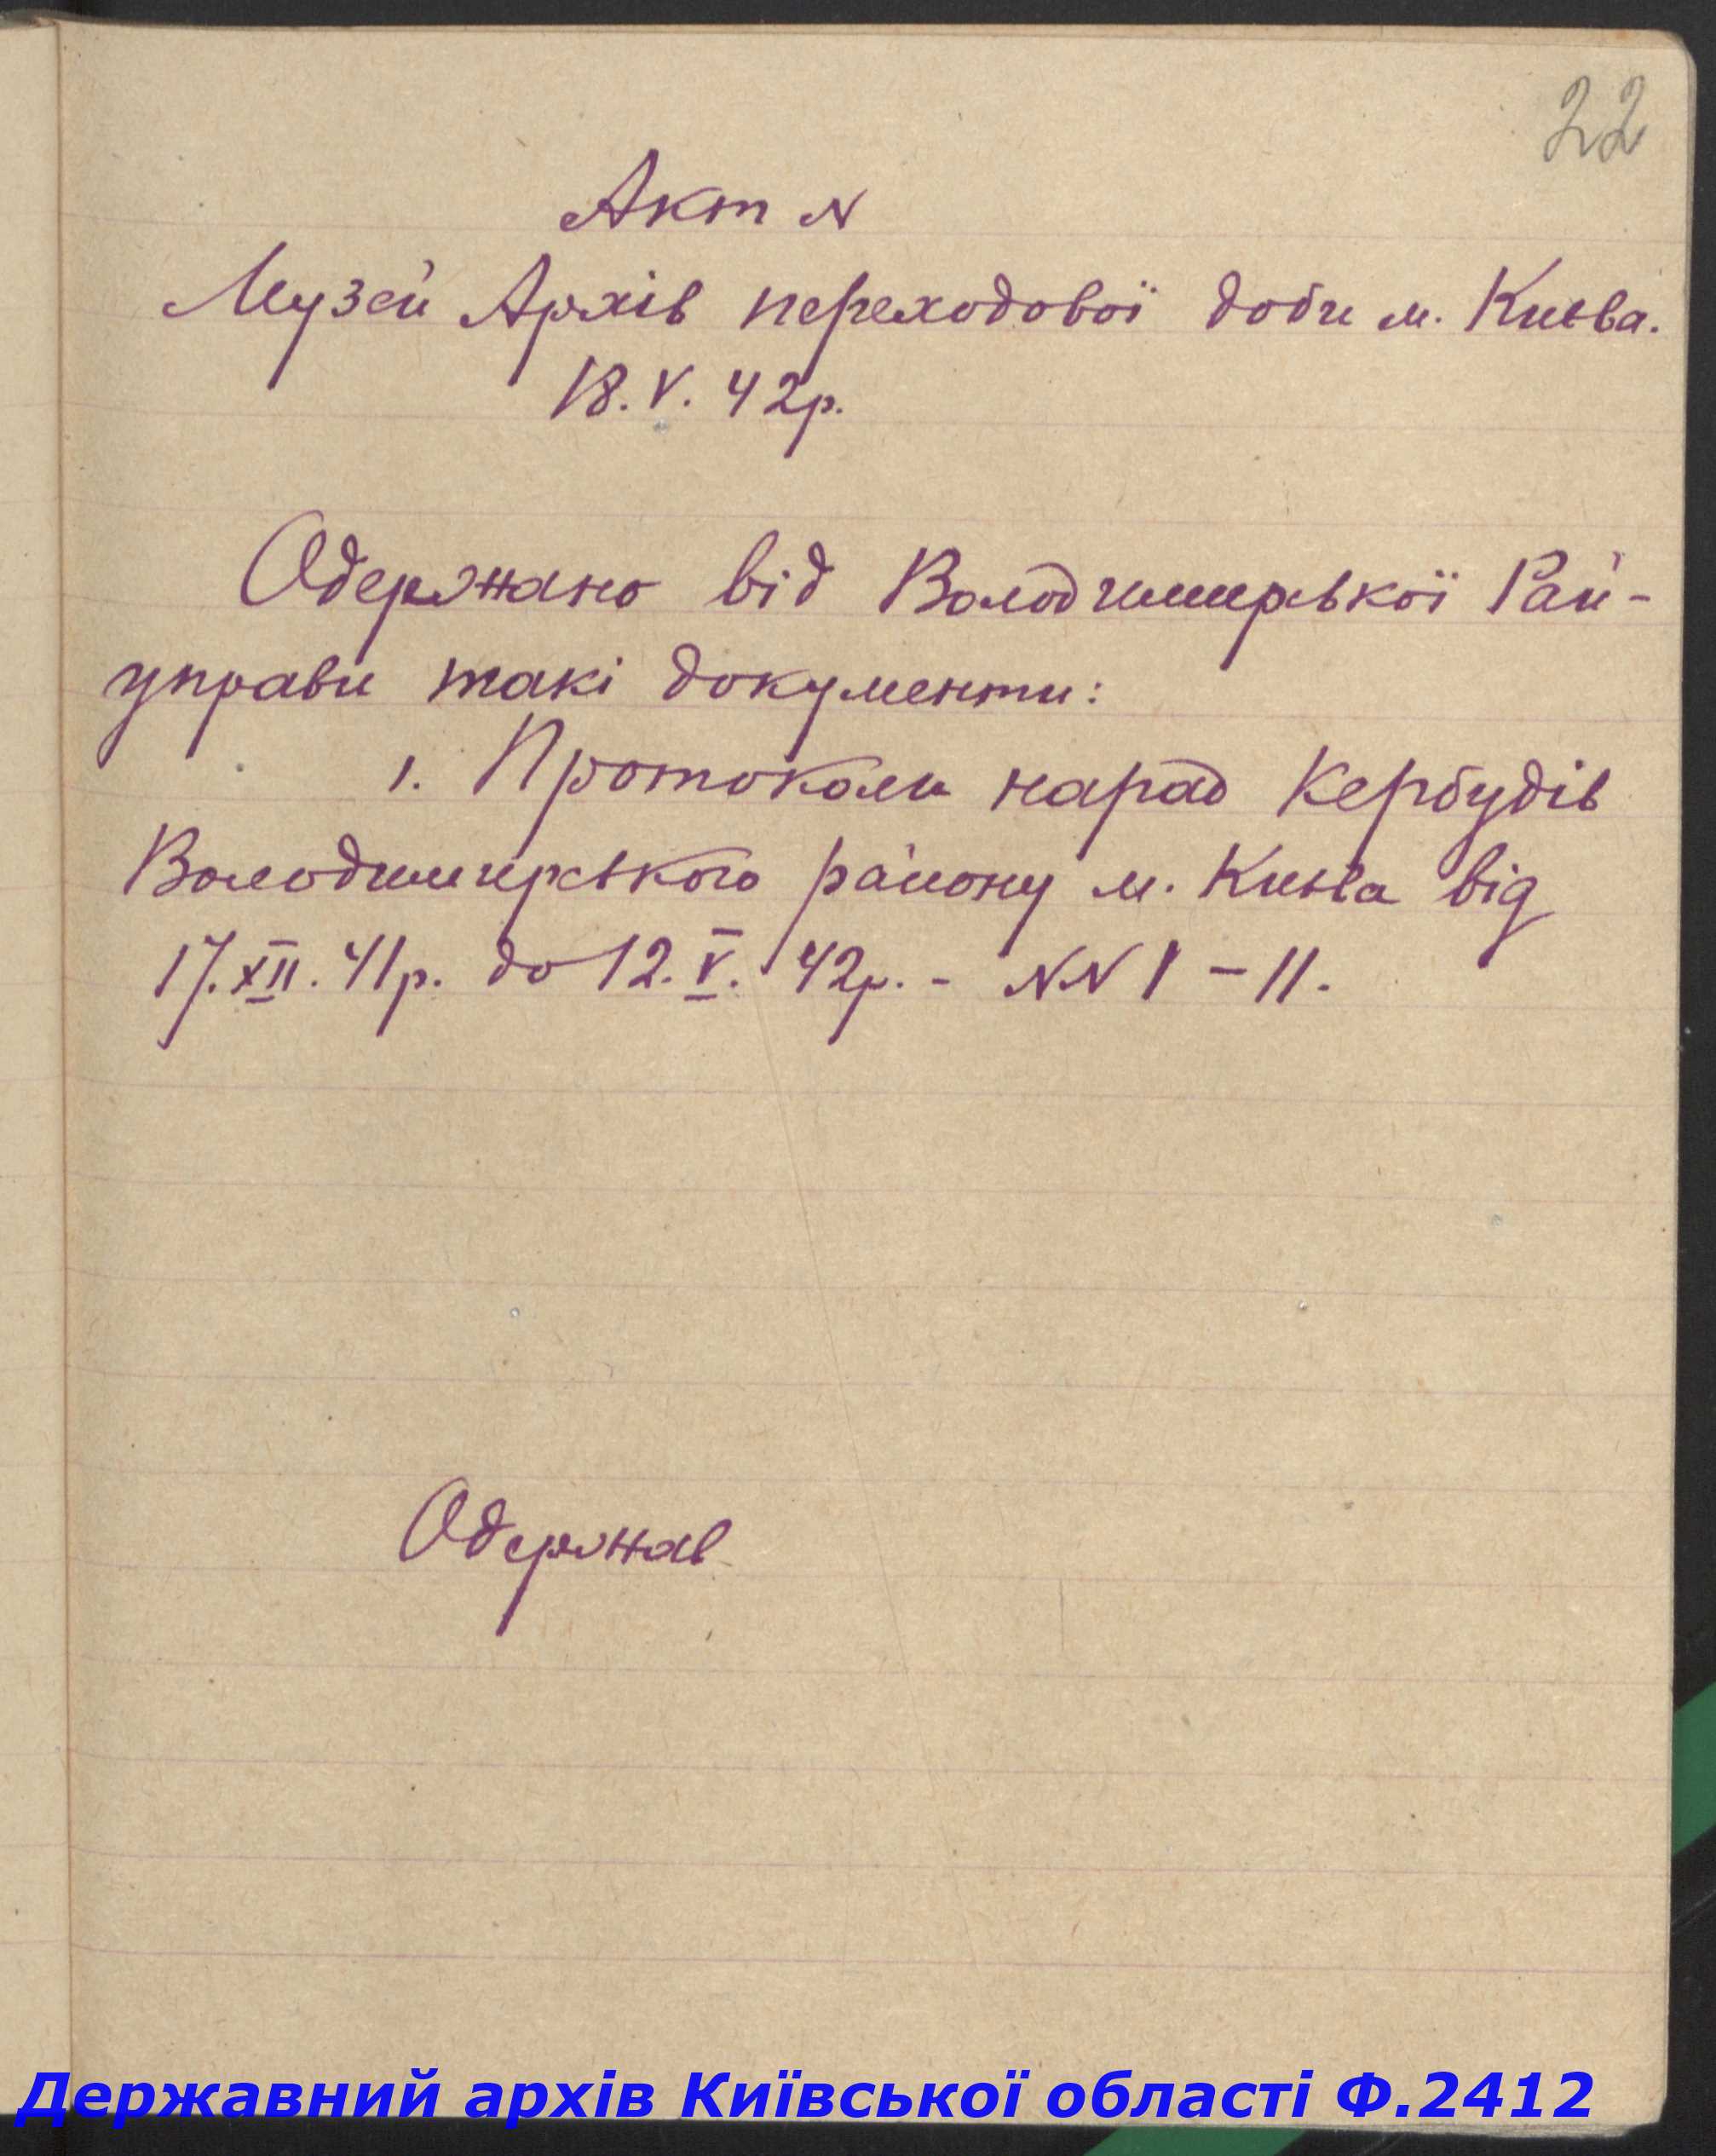 22
Акт N
Музей Архів переходової доби м. Києва.
18. V. 42р.
Одержано від Володимирської Рай-
управи такі документи:
1. Протоколи нарад Кербудів
Володимирського району м. Києва від
17. XII. 41р. до 12. V. 42р. - NN 1 - 11.
Одержав
Державний архів Київської області Ф.2412